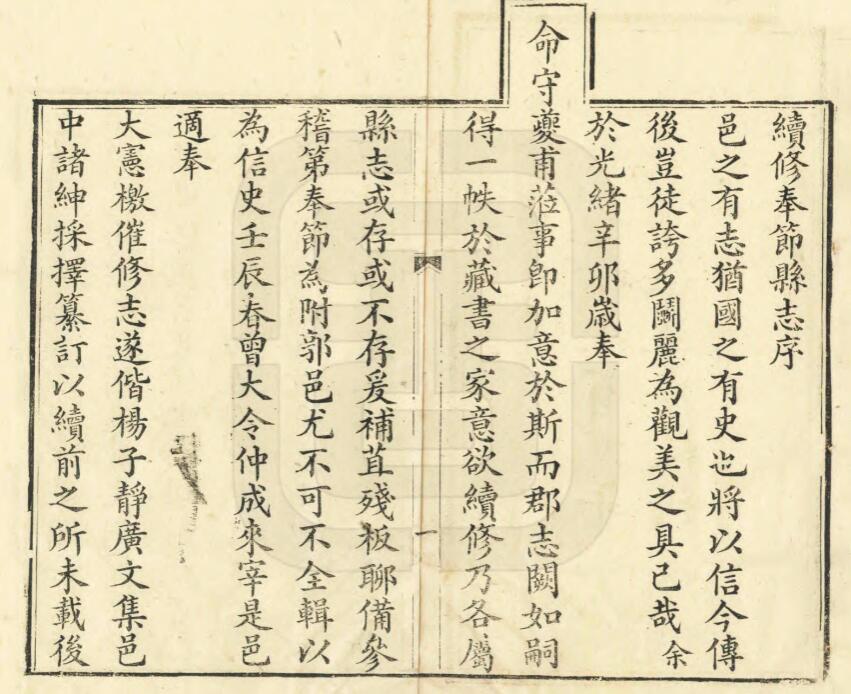 續修奉節縣志序
邑之有志猶國之有史也將以信今傳
後豈徒誇多鬭麗為觀美之具已哉余
於光緒辛卯嵗奉
命守夔甫蒞事即加意於斯而郡志闕如嗣
得一帙於藏書之家意欲續修乃各屬
一
縣志或存或不存爰補苴殘板聊備參
稽第奉節為附郭邑尤不可不全輯以
為信史壬辰春曾大令仲成來宰是邑
適奉
大憲檄催修志遂偕楊子靜廣文集邑
中諸紳採擇纂訂以續前之所未載後